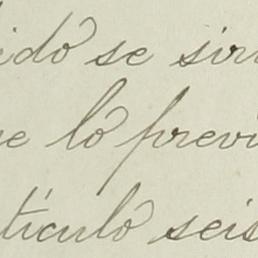 ido se sir
e lo previ
tículo seis